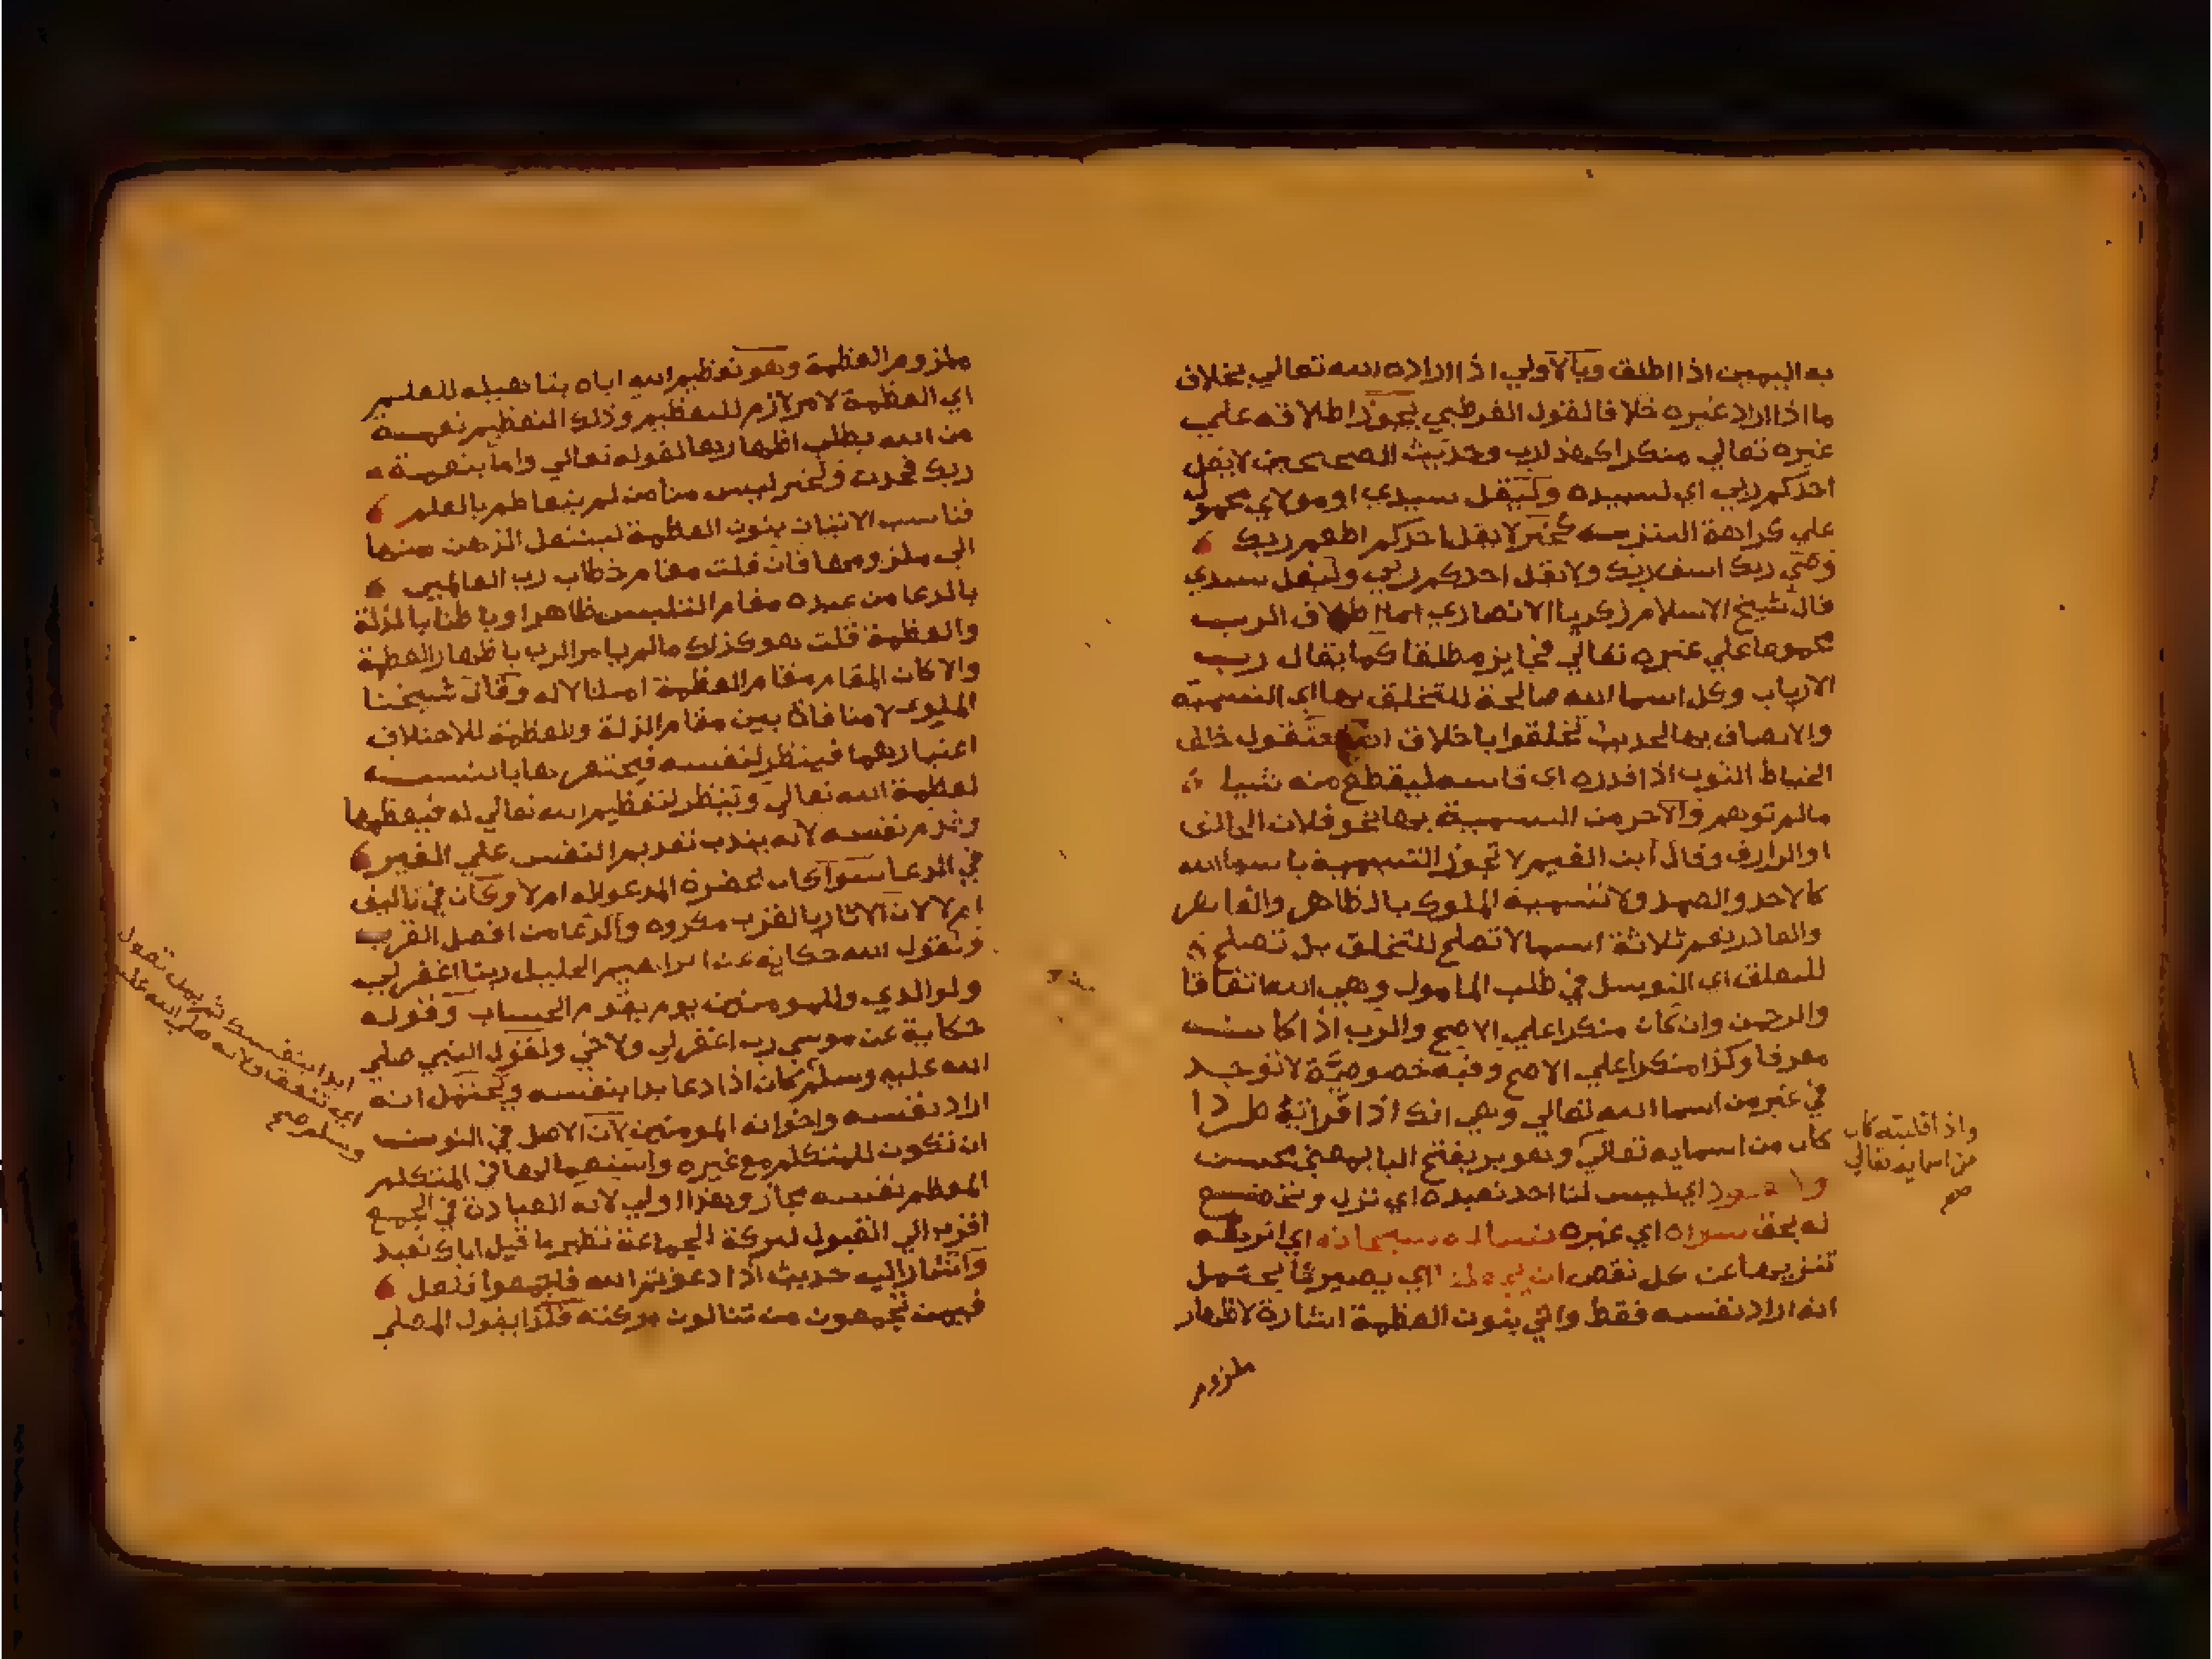 به اليمين اذا اطلق وبالاولي اذا اراده الله تعالي بخلاف
ما اذا اراد غيره خلافا لقول القرطبي يجوز اطلاقه علي
غيره تعالي منكرا كهذا رب وحديث الصحيحين لا يقل
احدكم ربي اي لسيده وليقل سيدي او مولاي محمول
علي كراهة التنزيه كخبر لا يقل احدكم اطعم ربك
وضي ربك اسق ربك ولا يقل احدكم ربي وليقل سيدي
قال شيخ الاسلام زكريا الانصاري اما اطلاق الرب
علي غيره تعالي فجايز مطلقا كما يقال رب
الارباب وكل اسما الله صالحة للتخلق بها اي التسمية
والاتصاف بها لحديث تخلقوا باخلاق الله فتقول خلق
الخياط الثوب اذا قدره اي قاسه ليقطع منه شيا
مالم توهم والاحرمت التسمية بها نحو فلان الخالق
او الرازق وقال ابن القيم لا تجوز التسمية باسما الله
كالاحد والصمد ولا تسمية الملوك بالظاهر والقاهر
والقادر نعم ثلاثة اسما لا تصلح للتخلق بل تصلح
للتعلق اي التوسل في طلب المامول وهي الله اتفاقا
والرحمن وان كان منكرا علي الاصح والرب اذا كان
معرفا وكذا منكرا علي الاصح وفيه خصوصية لا توجد
في غيره من اسما الله تعالي وهي انك اذا قراته طردا
كان من اسمايه تعالي وهو بر بفتح البا بمعني محسن
واذا قلبته كان
من اسمايه تعالي
صح
اي ليس لنا احد نعبده اي نذل ونخضع
له بحق سواه اي غيره نساله سبحانه اي انزهه
تنزيها عن كل نقص ان اي يصير يحتمل
انه اراد نفسه فقط واتي بنون العظمة اشارة لاظهار
ملزوم
ملزوم العظمة وهو تعظيم الله اياه بتاهيله للعلم
اي العظمة لامر لازم للتعظيم وذلك التعظيم نعمة
من الله يطلب اظهارها لقوله تعالي واما بنعمة
ربك فحدث ولخبر ليس منا من لم يتعاظم بالعلم
فناسب الاتيان بنون العظمة لينتقل الذهن منها
الي ملزومها فان قلت مقام خطاب رب العالمين
بالدعا من عبده مقام التلبس ظاهرا وباطنا بالذلة
والعظمة قلت هو كذلك مالم يامر الرب باظهار العظمة
والا كان المقام مقام العظمة امتثالا له وقال شيخنا
الملوي لا منافاة بين مقام الذلة والعظمة لاختلاف
اعتبارهما فينظر لنفسه فيحتقرها بالنسبة
لعظمة الله تعالي وينظر لتعظيم الله تعالي له فيعظمها
وقدم نفسه لانه يندب تقديم النفس علي الغير
في الدعا سوا كان بحضرة المدعو له ام لا وكان في تاليف
ام لا لان الايثار بالقرب مكروه والدعا من افضل القرب
ولقول الله حكاية عن ابراهيم الخليل ربنا اغفر لي
ولوالدي وللمومنين يوم يقوم الحساب وقوله
حكاية عن موسي رب اغفر لي ولاخي ولقول النبي صلي
الله عليه وسلم كان اذا دعا بدا بنفسه ويحتمل انه
ابدا بنفسك ثم بمن تعول
اي تنفق ولانه صلي الله عليه
وسلم صح
اراد نفسه واخوانه المومنين لان الاصل في النون
ان تكون للمتكلم مع غيره واستعمالها في المتكلم
المعظم نفسه مجاز وهذا اولي لانه العبادة في الجمع
اقرب الي القبول لبركة الجماعة نظير ما قيل اياك نعبد
واشار اليه حديث اذا دعوتم الله فاجمعوا فلعل
فيمن تجمعون من تنالون بركته فلذا يقول المصلي